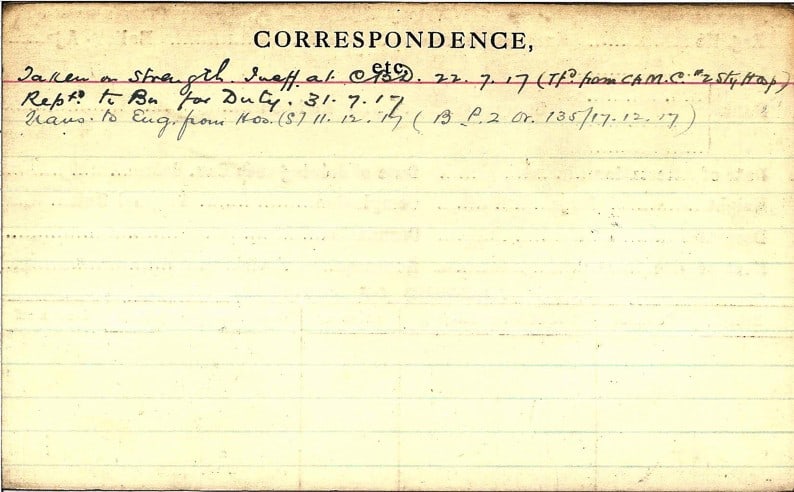 CORRESPONDENCE, etc.
Taken on Strength. Ineff. at C.B.D. 22.7.17 (Tfd from C.A.M.C. #2 Sty Hosp)
Reptd to Bn for Duty. 31.7.17
Trans. to Eng. from Hos. (S) 11.12.17 (B P.2 Or. 135/17.12.17)